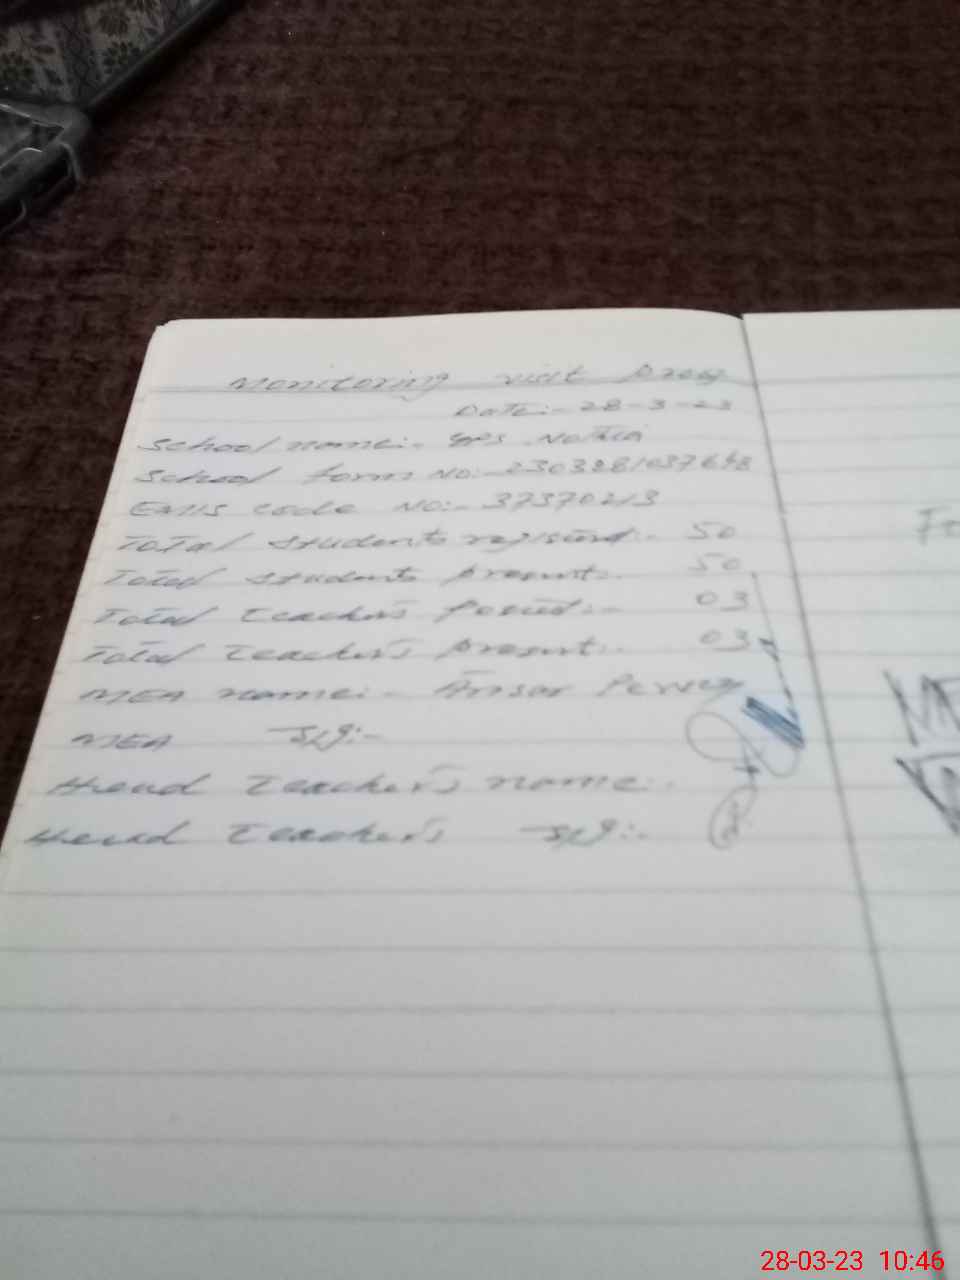 Monitoring visit Proof
Date:- 28-3-23
School name:- GPS
School form No:- 2303281037648
EMIS code No:- 37370213
Total students :- 50
Total students present:- 50
Total teacher's Posted:- 03
Total teacher's present:- 03
MEA name:- Ansar Pervez
MEA Sig:-
Head teacher's name:-
Head teacher's Sig:-
28-03-23 10:46